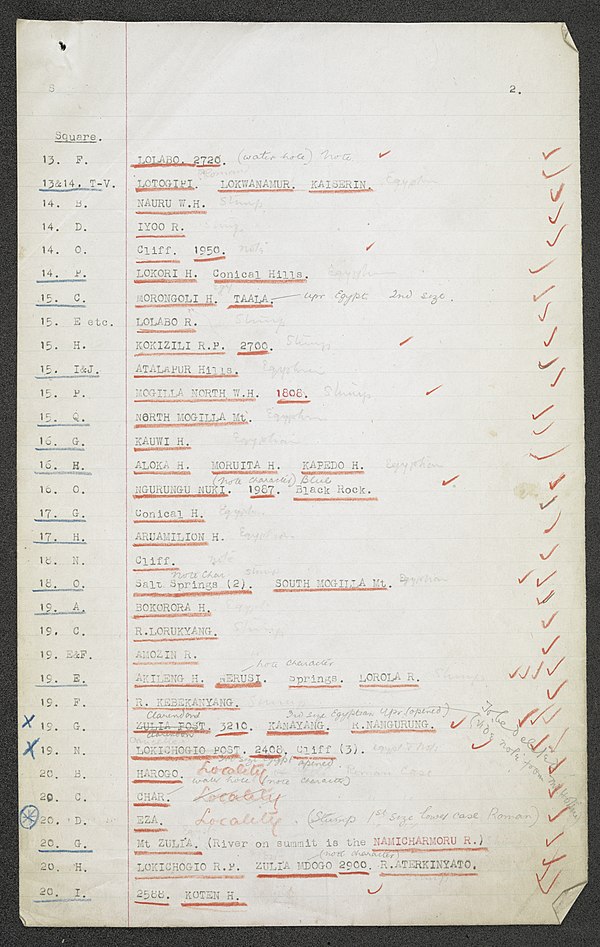 2.
Square.
13. F. LOLABO. 2720. (water hole) Note
Roman
13&14. T-V. LOTOGIPI. LOKWANAMUR. KAISERIN. Egyptian
14. B. NAURU W.H. Stump
14. D. IYOO R. Stump
14. O. Cliff. 1950. note
14. P. LOKORI H. Conical Hills. Egyptian
15. C. MORONGOLI H. TAALA. upr Egypt. 2nd size.
15. E etc. LOLABO R. Stump
15. H. KOKIZILI R.P. 2700. Stump
15. I&J. ATALAPUR Hills. Egyptian
15. P. MOGILLA NORTH W.H. 1808. Stump
15. Q. NORTH MOGILLA Mt. Egyptian
16. G. KAUWI H. Egyptian
16. H. ALOKA H. MORUITA H. KAPEDO H. Egyptian
(note character) Blue
16. O. NGURUNGU NUKI. 1987. Black Rock.
17. G. Conical H. Egyptian
17. H. ARUAMILION H. Egyptian
18. N. Cliff. note
note char stump
18. O. Salt Springs (2). SOUTH MOGILLA Mt. Egyptian
19. A. BOKORORA H. Egyptian
19. C. R.LORUKYANG. Stump
19. E&F. AMOZIN R.
note character
19. E. AKILENG H. NERUSI. Springs. LOROLA R. Stump
19. F. R. KEBEKANYANG. Stump
Clarendons 2nd size Egyptian upr (opened)
19. G. ZULIA POST. 3210. KAMAYANG. R.NANGURUNG.
To be deleted
19. N. LOKICHOGIO POST. 2408. Cliff (3).
opened
20. B. HAROGO. Locality Roman
water hole (note character)
20. C. CHAR. Locality
20. D. EZA. Locality. (Stump 1st size lower case Roman)
20. G. Mt ZULIA. (River on summit is the NAMICHARMORU R.)
(note character)
20. H. LOKICHOGIO R.P. ZULIA MDOGO 2900. R.ATERKINYATO.
20. I. 2588. KOTEN H.